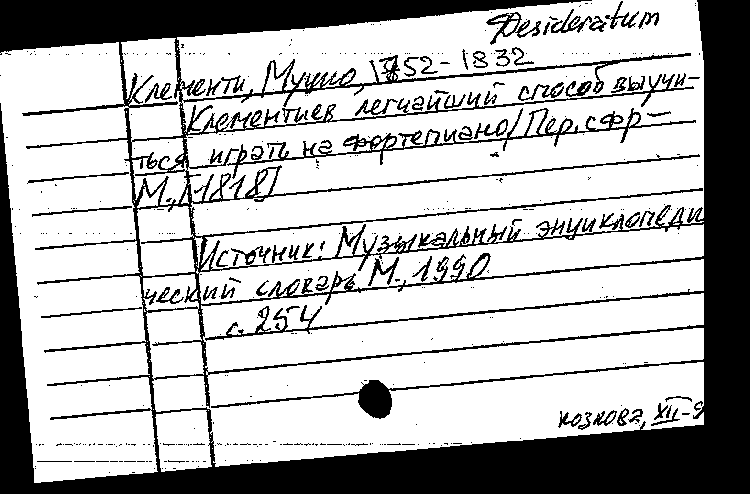 Desideratum
Клементи, Муцио, 1752-1832
Клементиев легчайший способ выучи-
ться играть на фортепиано/Пер. с фр-
М., [1818]
Источник: Музыкальный энциклопеди
ческий словарь М., 1990
с. 254
козлова, XII-9